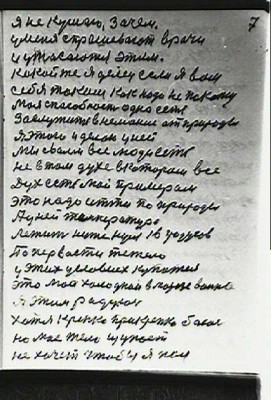 7
Я не кушаю, Зачем.
у меня спрашевают врачи
и ужасаются этим.
Какой же я делец если я вам
себя таким как надо не покажу
Моя способность одно есть
Заслужить внемание от природы
Я этого и делаю у ней
Мы свами все люди есть
не в том духе в котором все
Дух есть мой примерам
это надо итти по природы
А у ней температура
летит ниже нуля 16 градусов
По первасти тяжело
у этих условиях купатся
это мой холодной в
Я этим радуюсь
Хотя крепко прикрепко балею
но мое тело
не хочет чтобы я ел